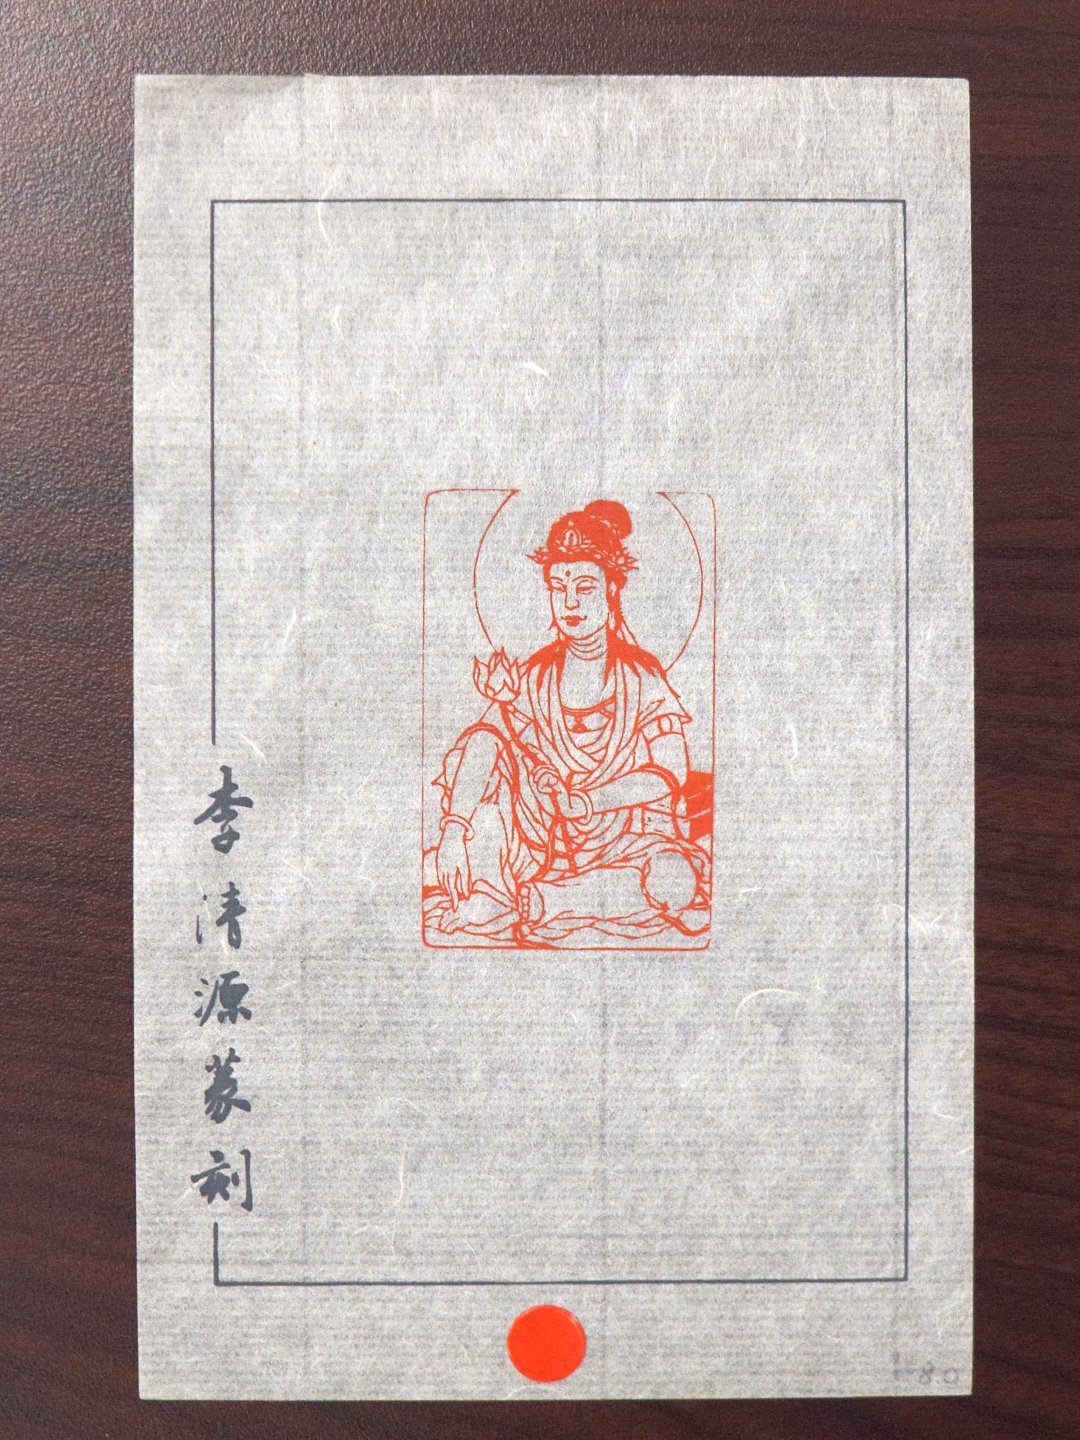 李清源篆刻
1-8.0